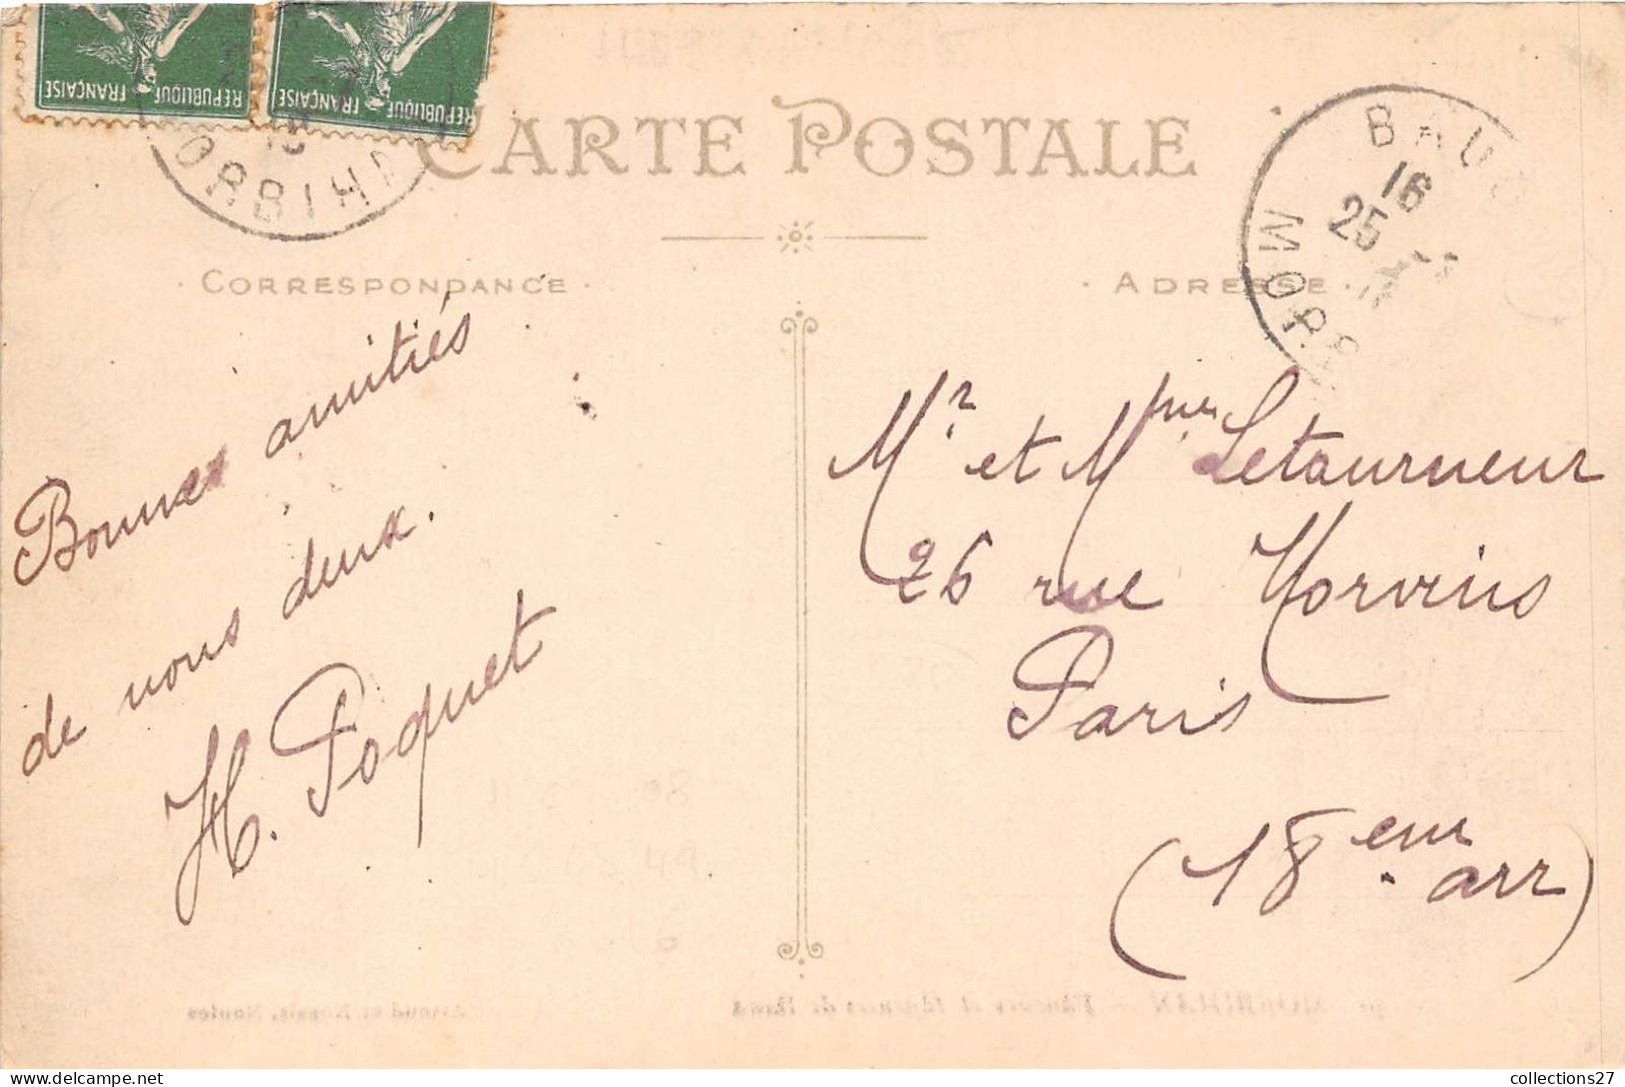 REPUBLIQUE FRANÇAISE
REPUBLIQUE FRANÇAISE
ORBIHA
CARTE POSTALE
BAUD
16
25
MORB
CORRESPONDANCE
ADRESSE
Bonnes amitiés
de nous deux.
H. Poquet
Mr et Mme Letourneur
26 rue Norvins
Paris
(18eme arr)
MORBIHAN
Nantes
collections27